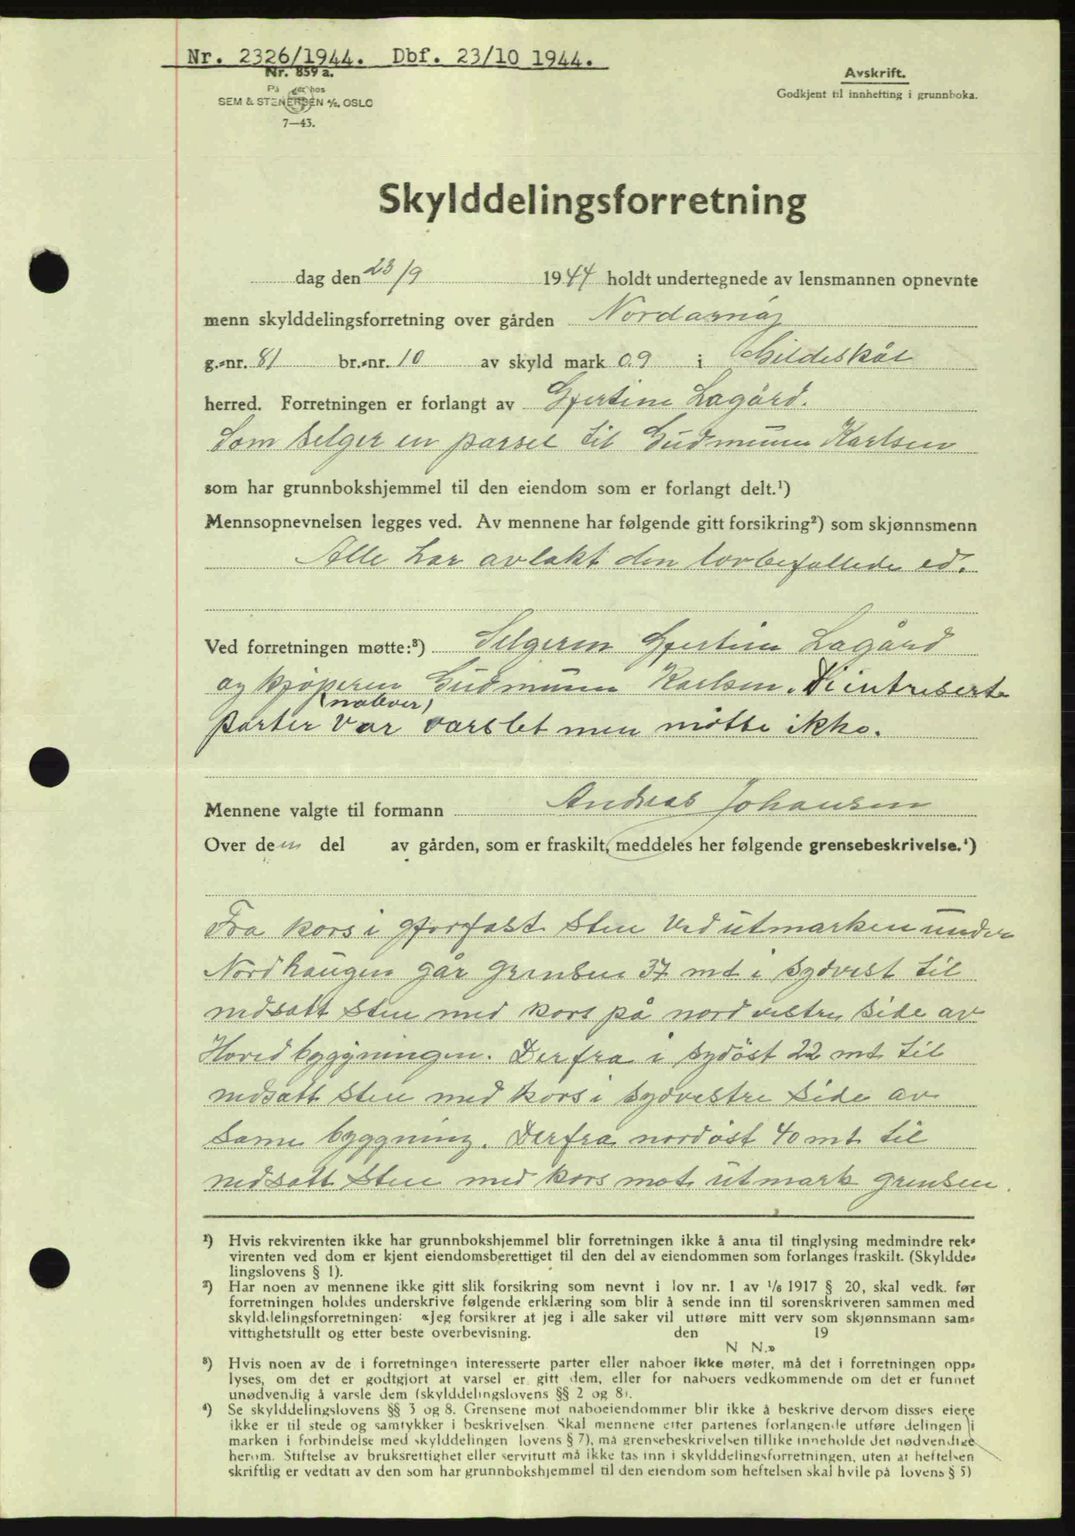 Nr. 2326/1944. Dbf. 23/10 1944.
Nr. 859 a.
På hos
SEM & STENERSEN A/S, OSLO
7—43.
Avskrift.
Godkjent til innhefting i grunnboka.
Skylddelingsforretning
dag den 23/9 1944 holdt undertegnede av lensmannen opnevnte
menn skylddelingsforretning over gården Nordarnøy
g.-nr. 81 br.-nr. 10 av skyld mark 0.9 i Gildeskål
herred. Forretningen er forlangt av Gjertine Lagård.
Som selger en parsel til Gudmunn Karlsen
som har grunnbokshjemmel til den eiendom som er forlangt delt.¹)
Mennsopnevnelsen legges ved. Av mennene har følgende gitt forsikring²) som skjønnsmenn
Alle har avlakt den lovbefallede ed.
Ved forretningen møtte:³) Selgeren Gjertine Lagård
og kjøperen Gudmunn Karlsen. De intreserte
(naboer)
parter var varslet men møtte ikke.
Mennene valgte til formann Andreas Johansen
Over den del av gården, som er fraskilt, meddeles her følgende grensebeskrivelse.⁴)
Fra kors i jforfast sten ved utmarken under
Nordhaugen går grensen 37 mt i sydvest til
nedsatt sten med kors på nordvestre side av
Hovedbyggningen. Derfra i sydöst 22 mt til
nedsatt sten med kors i sydvestre side av
same byggning. Derfra nordöst 40 mt til
nedsatt sten med kors mot utmark grensen.
¹) Hvis rekvirenten ikke har grunnbokshjemmel blir forretningen ikke å anta til tinglysing medmindre rek-
virenten ved dom er kjent eiendomsberettiget til den del av eiendommen som forlanges fraskilt. (Skyldde-
lingslovens § 1).
²) Har noen av mennene ikke gitt slik forsikring som nevnt i lov nr. 1 av 1/6 1917 § 20, skal vedk. før
forretningen holdes underskrive følgende erklæring som blir å sende inn til sorenskriveren sammen med
skylddelingsforretningen: «Jeg forsikrer at jeg i alle saker vil utføre mitt verv som skjønnsmann sam-
vittighetsfullt og etter beste overbevisning. den 19
N N.»
³) Hvis noen av de i forretningen interesserte parter eller naboer ikke møter, må det i forretningen opp-
lyses, om det er godtgjort at varsel er gitt dem, eller for naboers vedkommende om det er funnet
unødvendig å varsle dem (skylddelingslovens §§ 2 og 8).
⁴) Se skylddelingslovens §§ 3 og 8. Grensene mot naboeiendommer blir ikke å beskrive dersom disses eiere
ikke er til stede og samtykker i beskrivelsen. Skal mennene etter partenes forlangende utføre delingen i
marken i forbindelse med skylddelingen lovens § 7), må grensebeskrivelsen tillike inneholde det nødvendige
herom. Stiftelse av bruksrettighet eller servitutt må ikke tas inn i skylddelingsforretningen, uten at heftelsen
skriftlig er vedtatt av den som har grunnbokshjemmel til den eiendom som heftelsen skal hvile på lovens § 5)